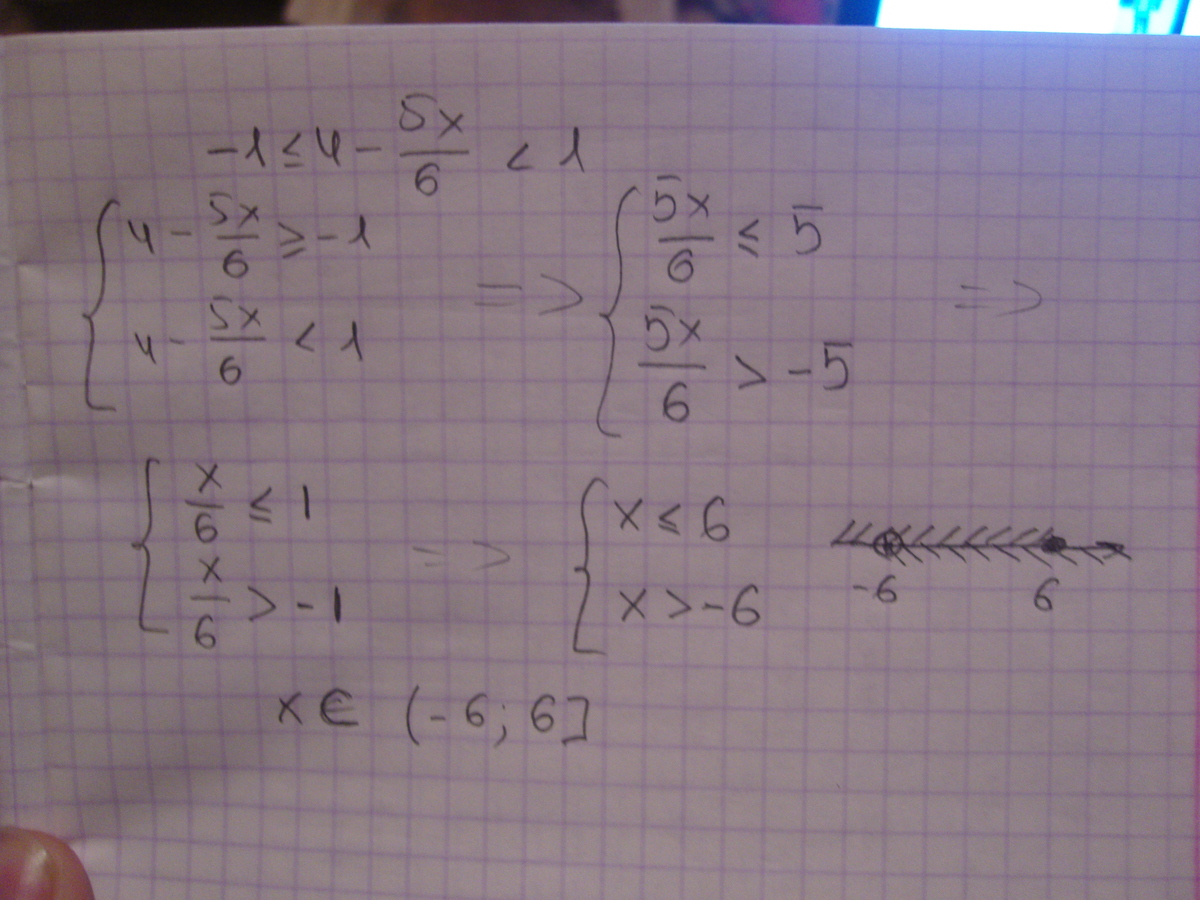 -1 ≤ 4 - 5x/6 < 1
{ 4 - 5x/6 ≥ -1
4 - 5x/6 < 1
=> { 5x/6 ≤ 5
5x/6 > -5 =>
{ x/6 ≤ 1
x/6 > -1
=> { x ≤ 6
x > -6
-6 6
x ∈ (-6; 6]